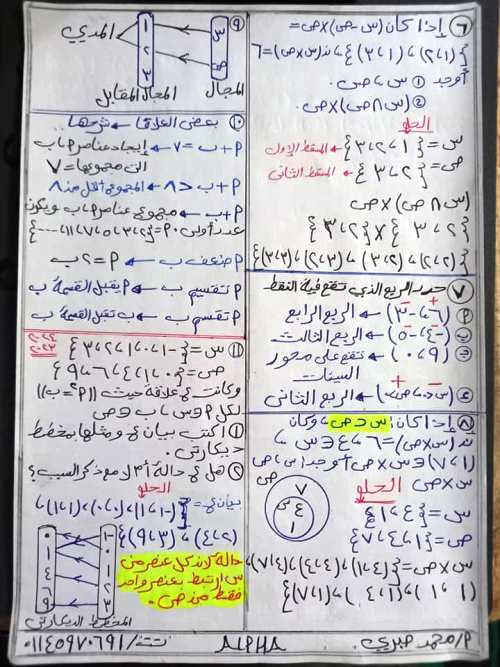 ٦ إذا كان (س - ص) × ص =
{(٢،١)، (٣،١)}، ن(س×ص) = ٦
أوجد ① س، ص.
② (س ∩ ص) × ص.
الحل
س = {١، ٢، ٣} المسقط الأول
ص = {٢، ٣} المسقط الثاني
(س ∩ ص) × ص
{٢، ٣} × {٢، ٣}
{(٢،٢)، (٣،٢)، (٢،٣)، (٣،٣)}
٧ حدد الربع الذي تقع فيه النقط
(٦، -٣) ← الربع الرابع
(-٤، -٥) ← الربع الثالث
(٠، ٩) ← تقع على محور
السينات
← الربع الثاني
٨ إذا كان: س ⊂ ص، وكان
ن(س×ص) = ٦، ٤ ∈ س،
(١،٧) ∈ س×ص أوجد: س، ص
س×ص
الحل
ص ٧ س ٤ ١
س = {٤، ١}
ص = {٧، ٤، ١}
س×ص = {(١،٤)، (٤،٤)، (٧،٤)،
(١،١)، (٤،١)، (٧،١)}
٩ س ص
١ ٢ ٣
المدي
المجال المجال المقابل
١٠ بعض العلاقات ← شرحها..
٩+ب = ٧ ← إيجاد عناصر ٩، ب
التي مجموعها = ٧
٩+ب < ٨ ← المجموع أقل من ٨
٩+ب ← مجموع عناصر ٩، ب ويكون
عدد أولى ٩٠ = {٢،٣،٥،٧،١١،----}
٩ ضعف ب ← ٩ = ٢ ب
٩ تقسيم ب ← ٩ يقبل القسمة ب
٩ تقسيم ب ← ب تقبل القسمة ب
٢٠٢٤
٢٠٢٣
١١ س = {-١، ٠، ١، ٢، ٣}
ص = {٠، ١، ٤، ٦، ٩}
وكانت ع علاقة حيث ((٩² = ب))
لكل ٩ ∈ س، ب ∈ ص
① اكتب بيان ع ومثلها بمخطط
ديكارتي.
② هل ع دالة أم لا مع ذكر السبب؟
الحل
بيان ع = {(-١،١)، (٠،٠)، (١،١)،
(٢،٤)، (٣،٩)}
-١ ٠ ١ ٢ ٣
٠ ١ ٤ ٦ ٩
دالة لأن كل عنصر من
س ارتبط بعنصر واحد
فقط من ص.
المخطط الديكارتي
م/محمد صبري. ALPHA ت/٠١١٤٥٩٧٠٦٩١